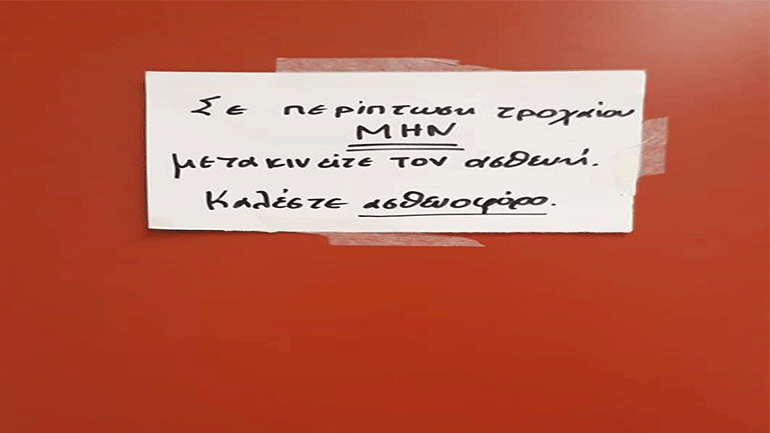 Σε περίπτωση τροχαίου
ΜΗΝ
μετακινείτε τον ασθενή.
Καλέστε ασθενοφόρο.